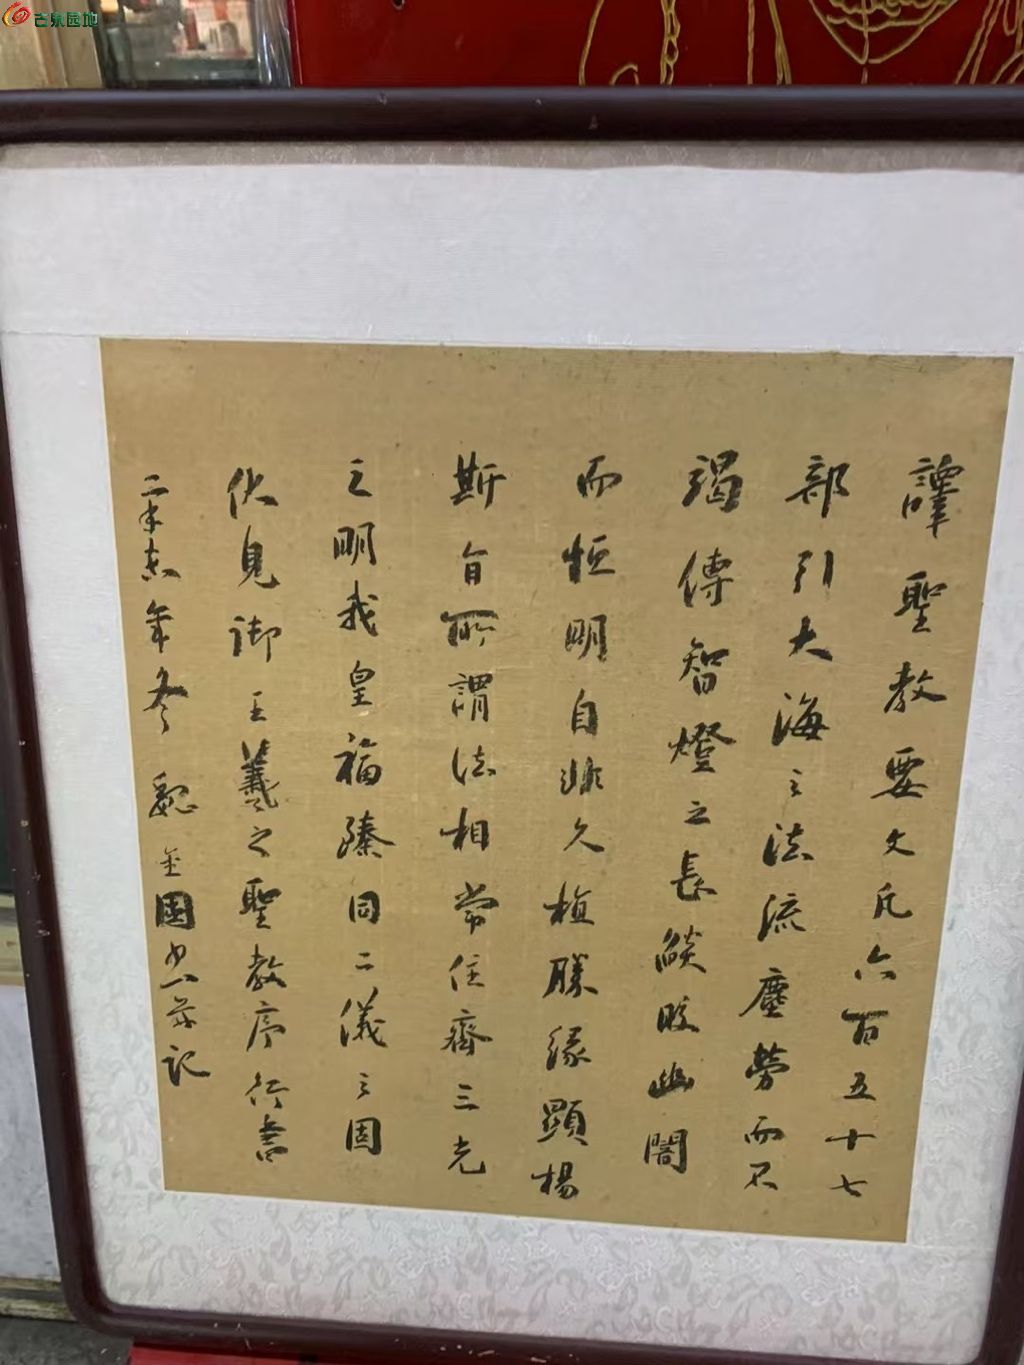 古泉园地
譯聖教要文凡六百五十七
部引大海之法流塵勞而不
竭傳智燈之長燄皎幽闇
而恒明自非久植勝緣顯楊
斯旨所謂法相常住齊三光
之明我皇福臻同二儀之固
伏見御 王羲之聖教序行書
年冬 魏 國 記